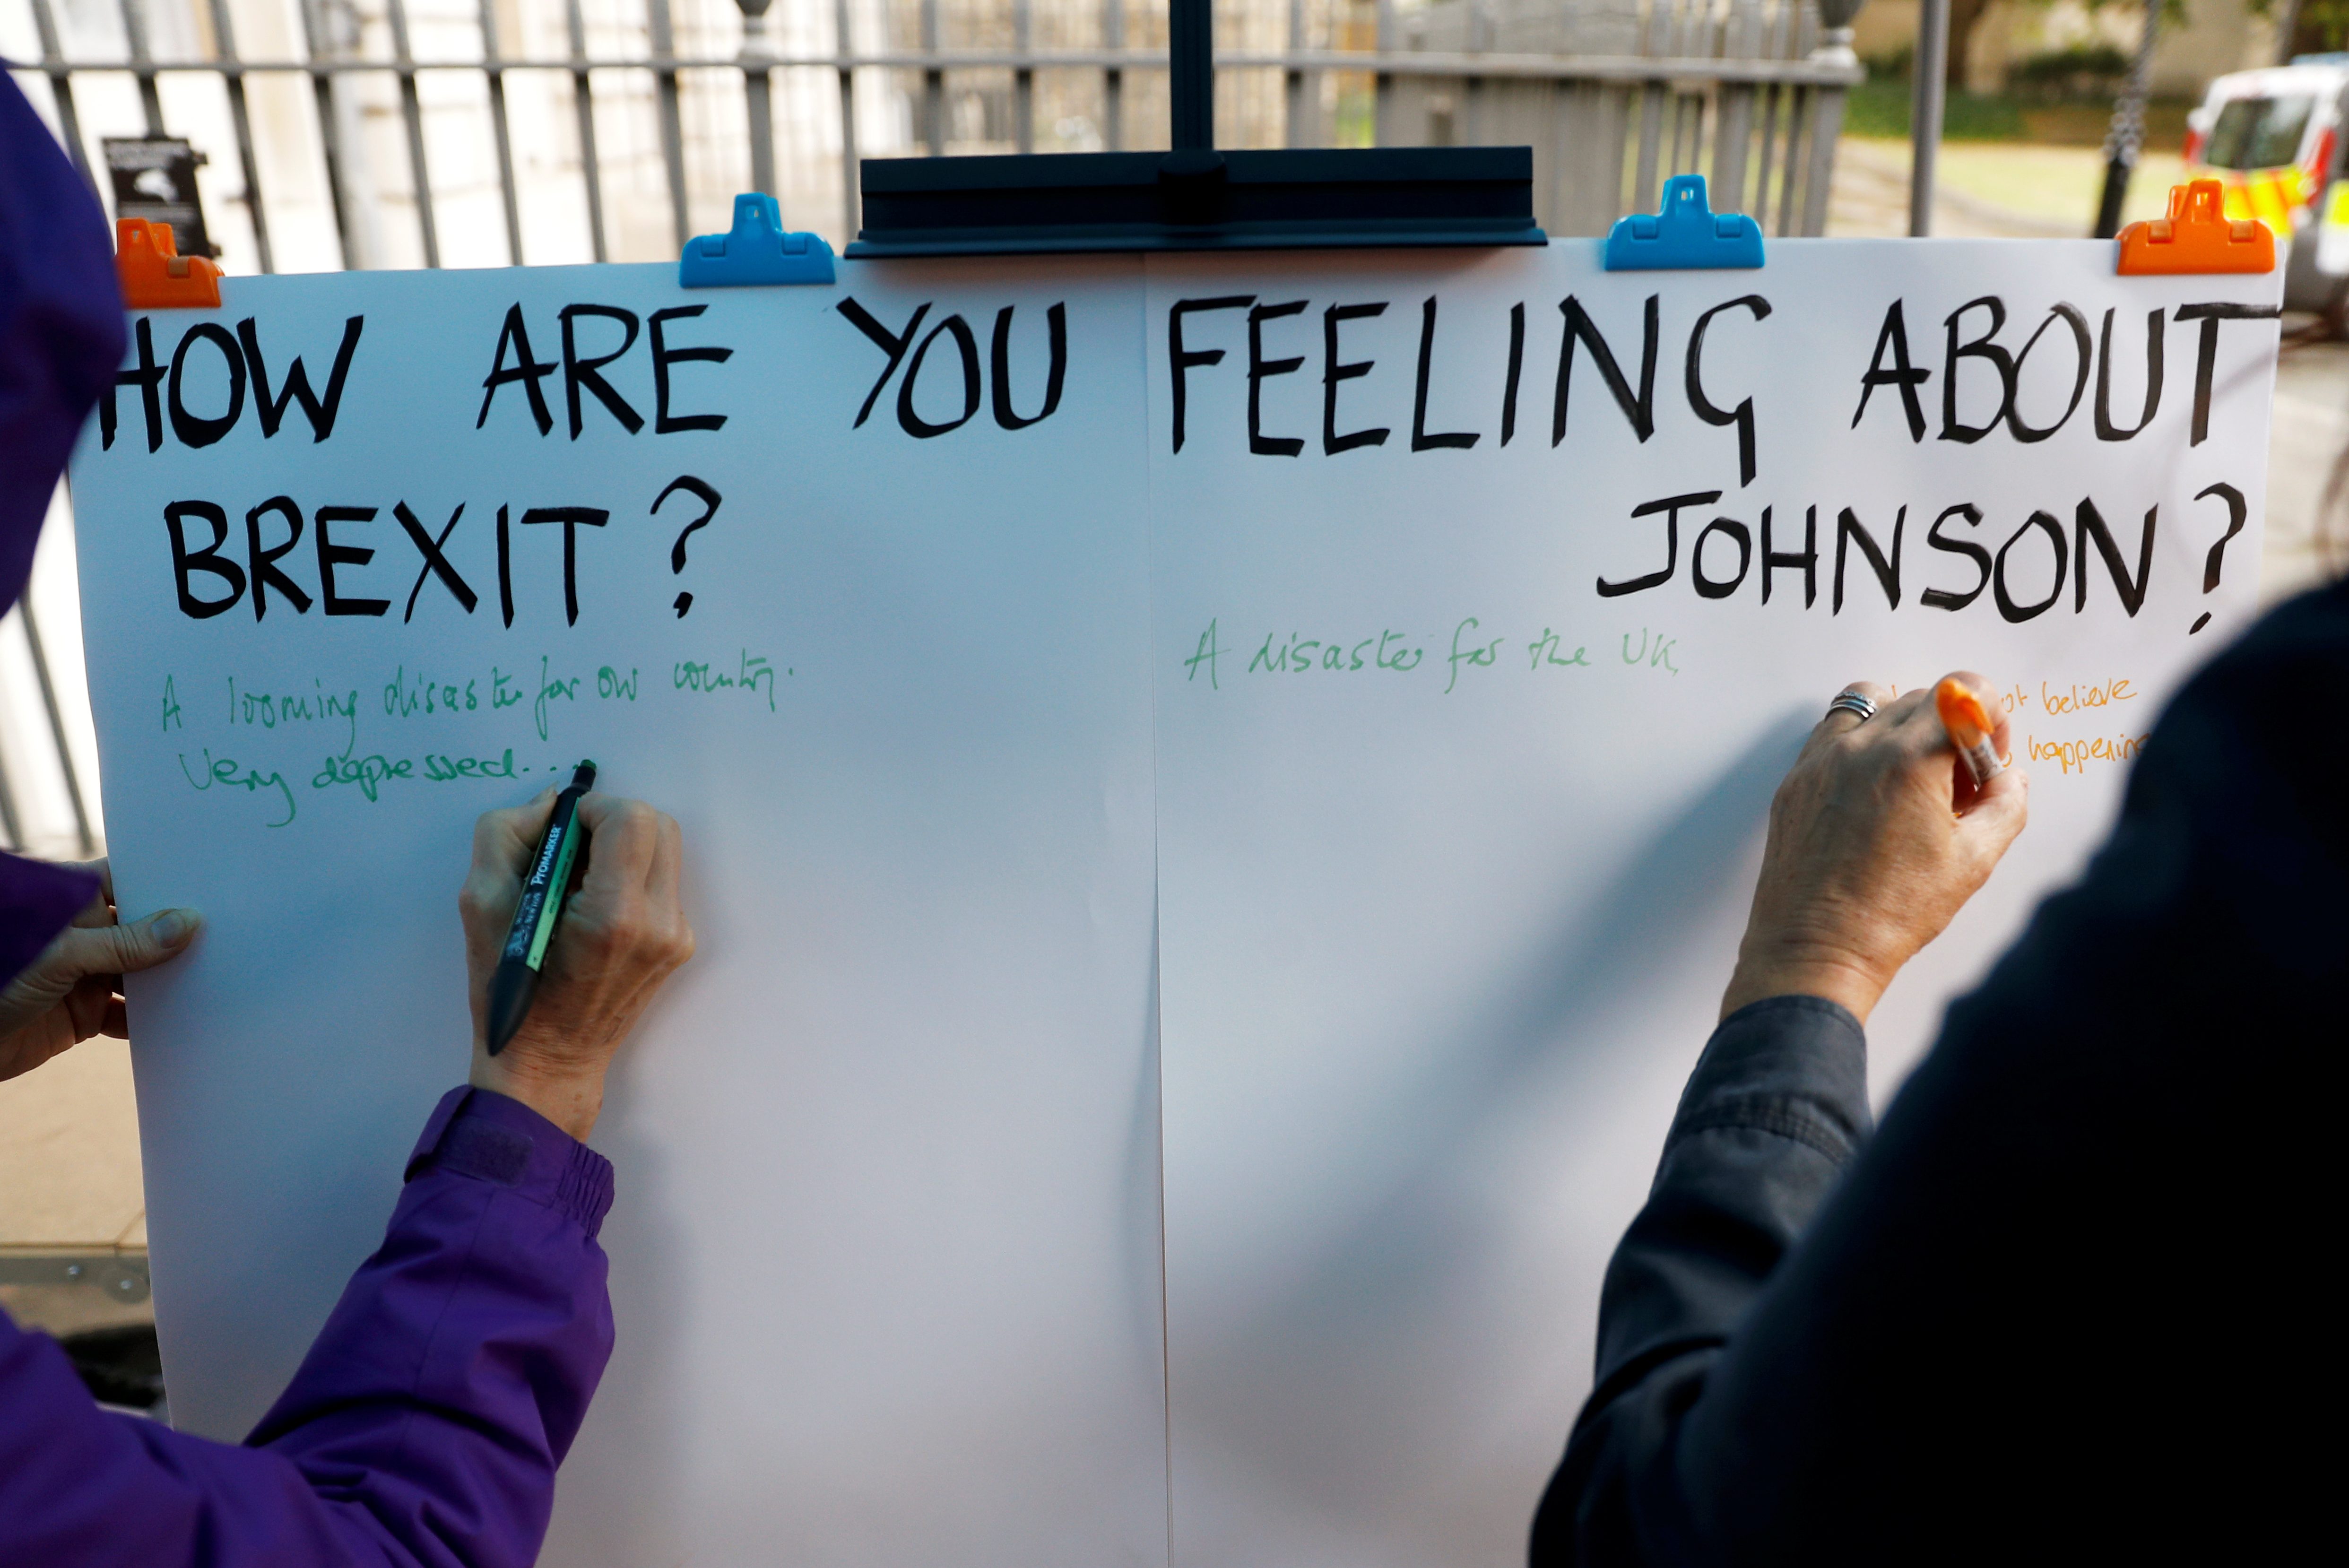 HOW ARE YOU FEELING ABOUT
BREXIT?
JOHNSON?
A looming disaster for our country.
Very depressed...
A disaster for the UK
believe
happening
PROMARKER